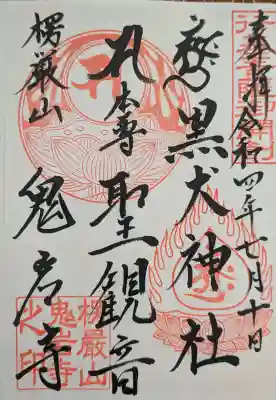 奉拝 令和四年七月十日
黒犬神社
本尊 聖観音
楞厳山 鬼岩寺
楞厳山
鬼岩寺
之印